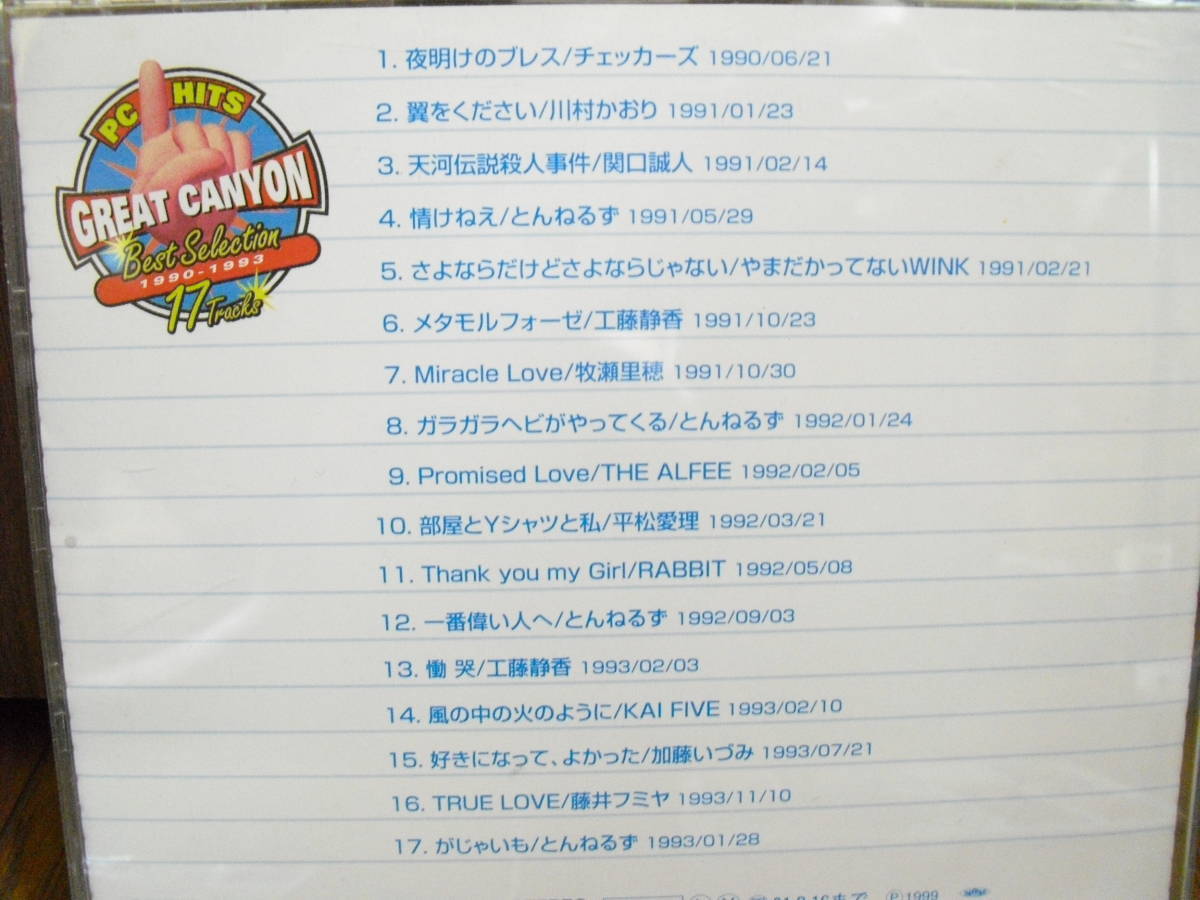 PC HITS
GREAT CANYON
Best Selection
1990-1993
17 Tracks
1. 夜明けのブレス/チェッカーズ 1990/06/21
2. 翼をください/川村かおり 1991/01/23
3. 天河伝説殺人事件/関口誠人 1991/02/14
4. 情けねえ/とんねるず 1991/05/29
5. さよならだけどさよならじゃない/やまだかってないWINK 1991/02/21
6. メタモルフォーゼ/工藤静香 1991/10/23
7. Miracle Love/牧瀬里穂 1991/10/30
8. ガラガラヘビがやってくる/とんねるず 1992/01/24
9. Promised Love/THE ALFEE 1992/02/05
10. 部屋とYシャツと私/平松愛理 1992/03/21
11. Thank you my Girl/RABBIT 1992/05/08
12. 一番偉い人へ/とんねるず 1992/09/03
13. 慟 哭/工藤静香 1993/02/03
14. 風の中の火のように/KAI FIVE 1993/02/10
15. 好きになって、よかった/加藤いづみ 1993/07/21
16. TRUE LOVE/藤井フミヤ 1993/11/10
17. がじゃいも/とんねるず 1993/01/28
まで Ⓟ1999